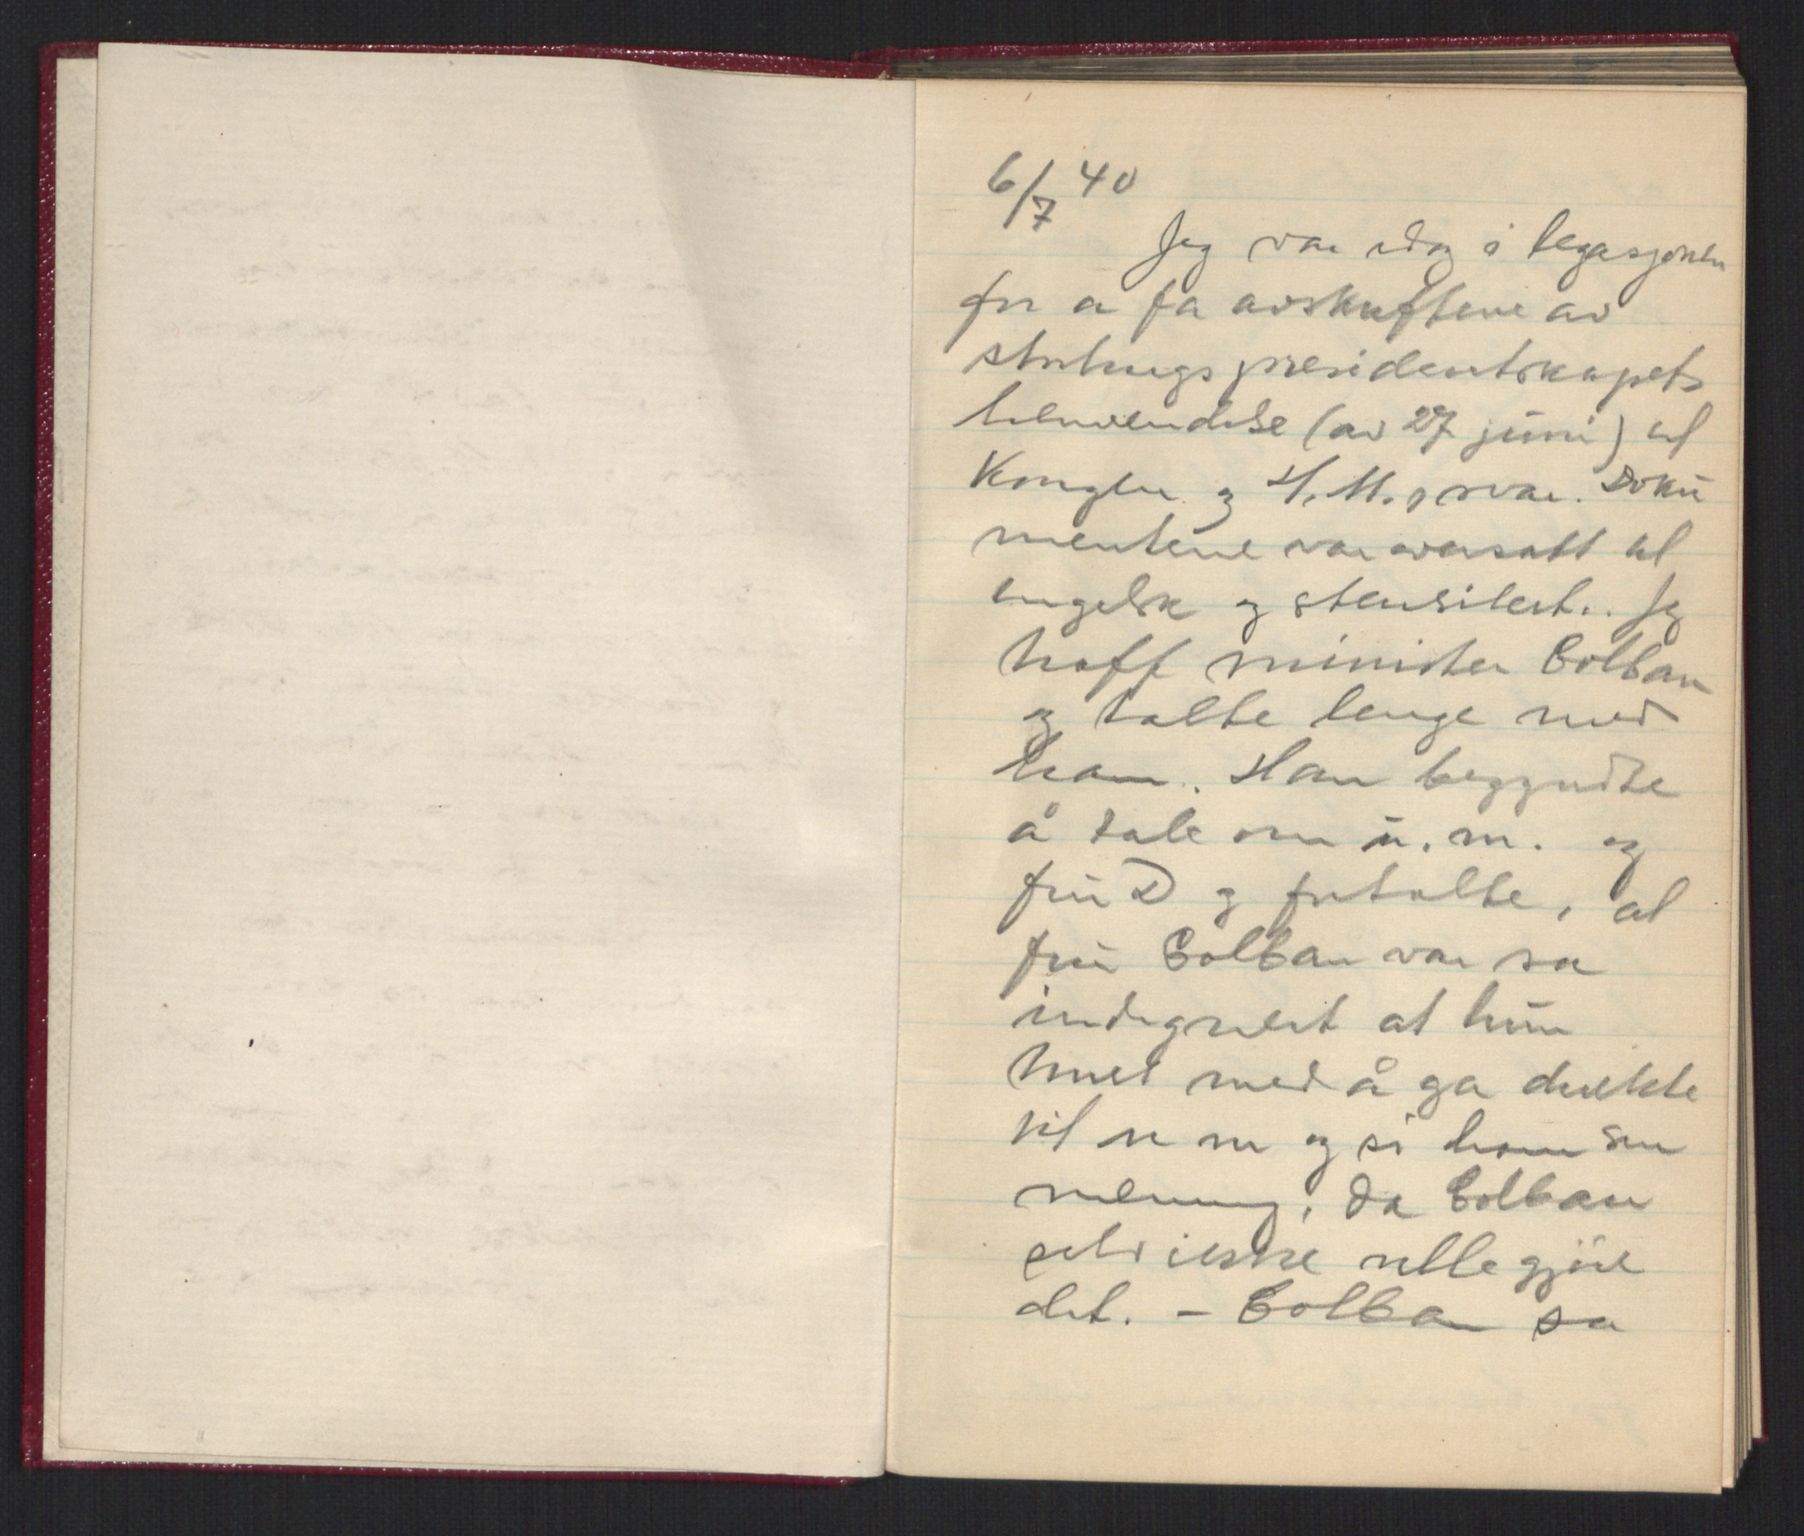 6/7 40
Jeg var idag i legasjonen
for a fa avskriftene av
stortingspresidentskapets
henvendelse (av 27 juni) til
Kongen og H.M.s svar. Doku
mentene var oversatt til
engelsk og stensilert. Jeg
traff minister Colban
og talte lenge med
ham. Han begyndte
å tale om u.m. og
fru D og fortalte, at
fru Colban var sa
indignert at hun
truet med å ga direkte
til u m og si ham sin
mening, da Colban
selv ikke ville gjöre
det. - Colban sa